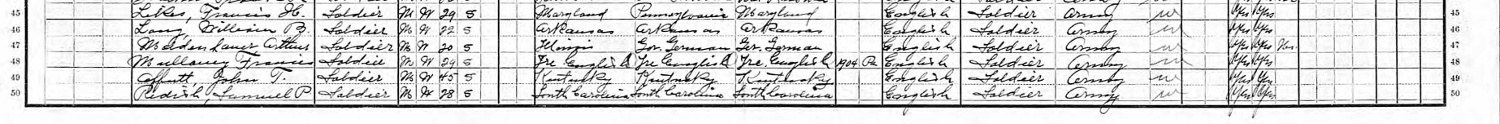 45 Likes, Francis H. Soldier M W 29 S Maryland Pennsylvania Maryland English Soldier Army W Yes Yes 45
46 Long, William B. Soldier M W 22 S Arkansas Arkansas Arkansas English Soldier Army W Yes Yes 46
47 Arthur Soldier M W 20 S Illinois Ger. German Ger. German English Soldier Army W Yes Yes 47
48 Mullaney, Francis Soldier M W 29 S Ire. English Ire. English Ire. English 1904 Pa English Soldier Army W Yes Yes 48
49 John T. Soldier M W 45 S Kentucky Kentucky Kentucky English Soldier Army W Yes Yes 49
50 Redish, Samuel P Soldier M W 28 S South Carolina South Carolina South Carolina English Soldier Army W Yes Yes 50